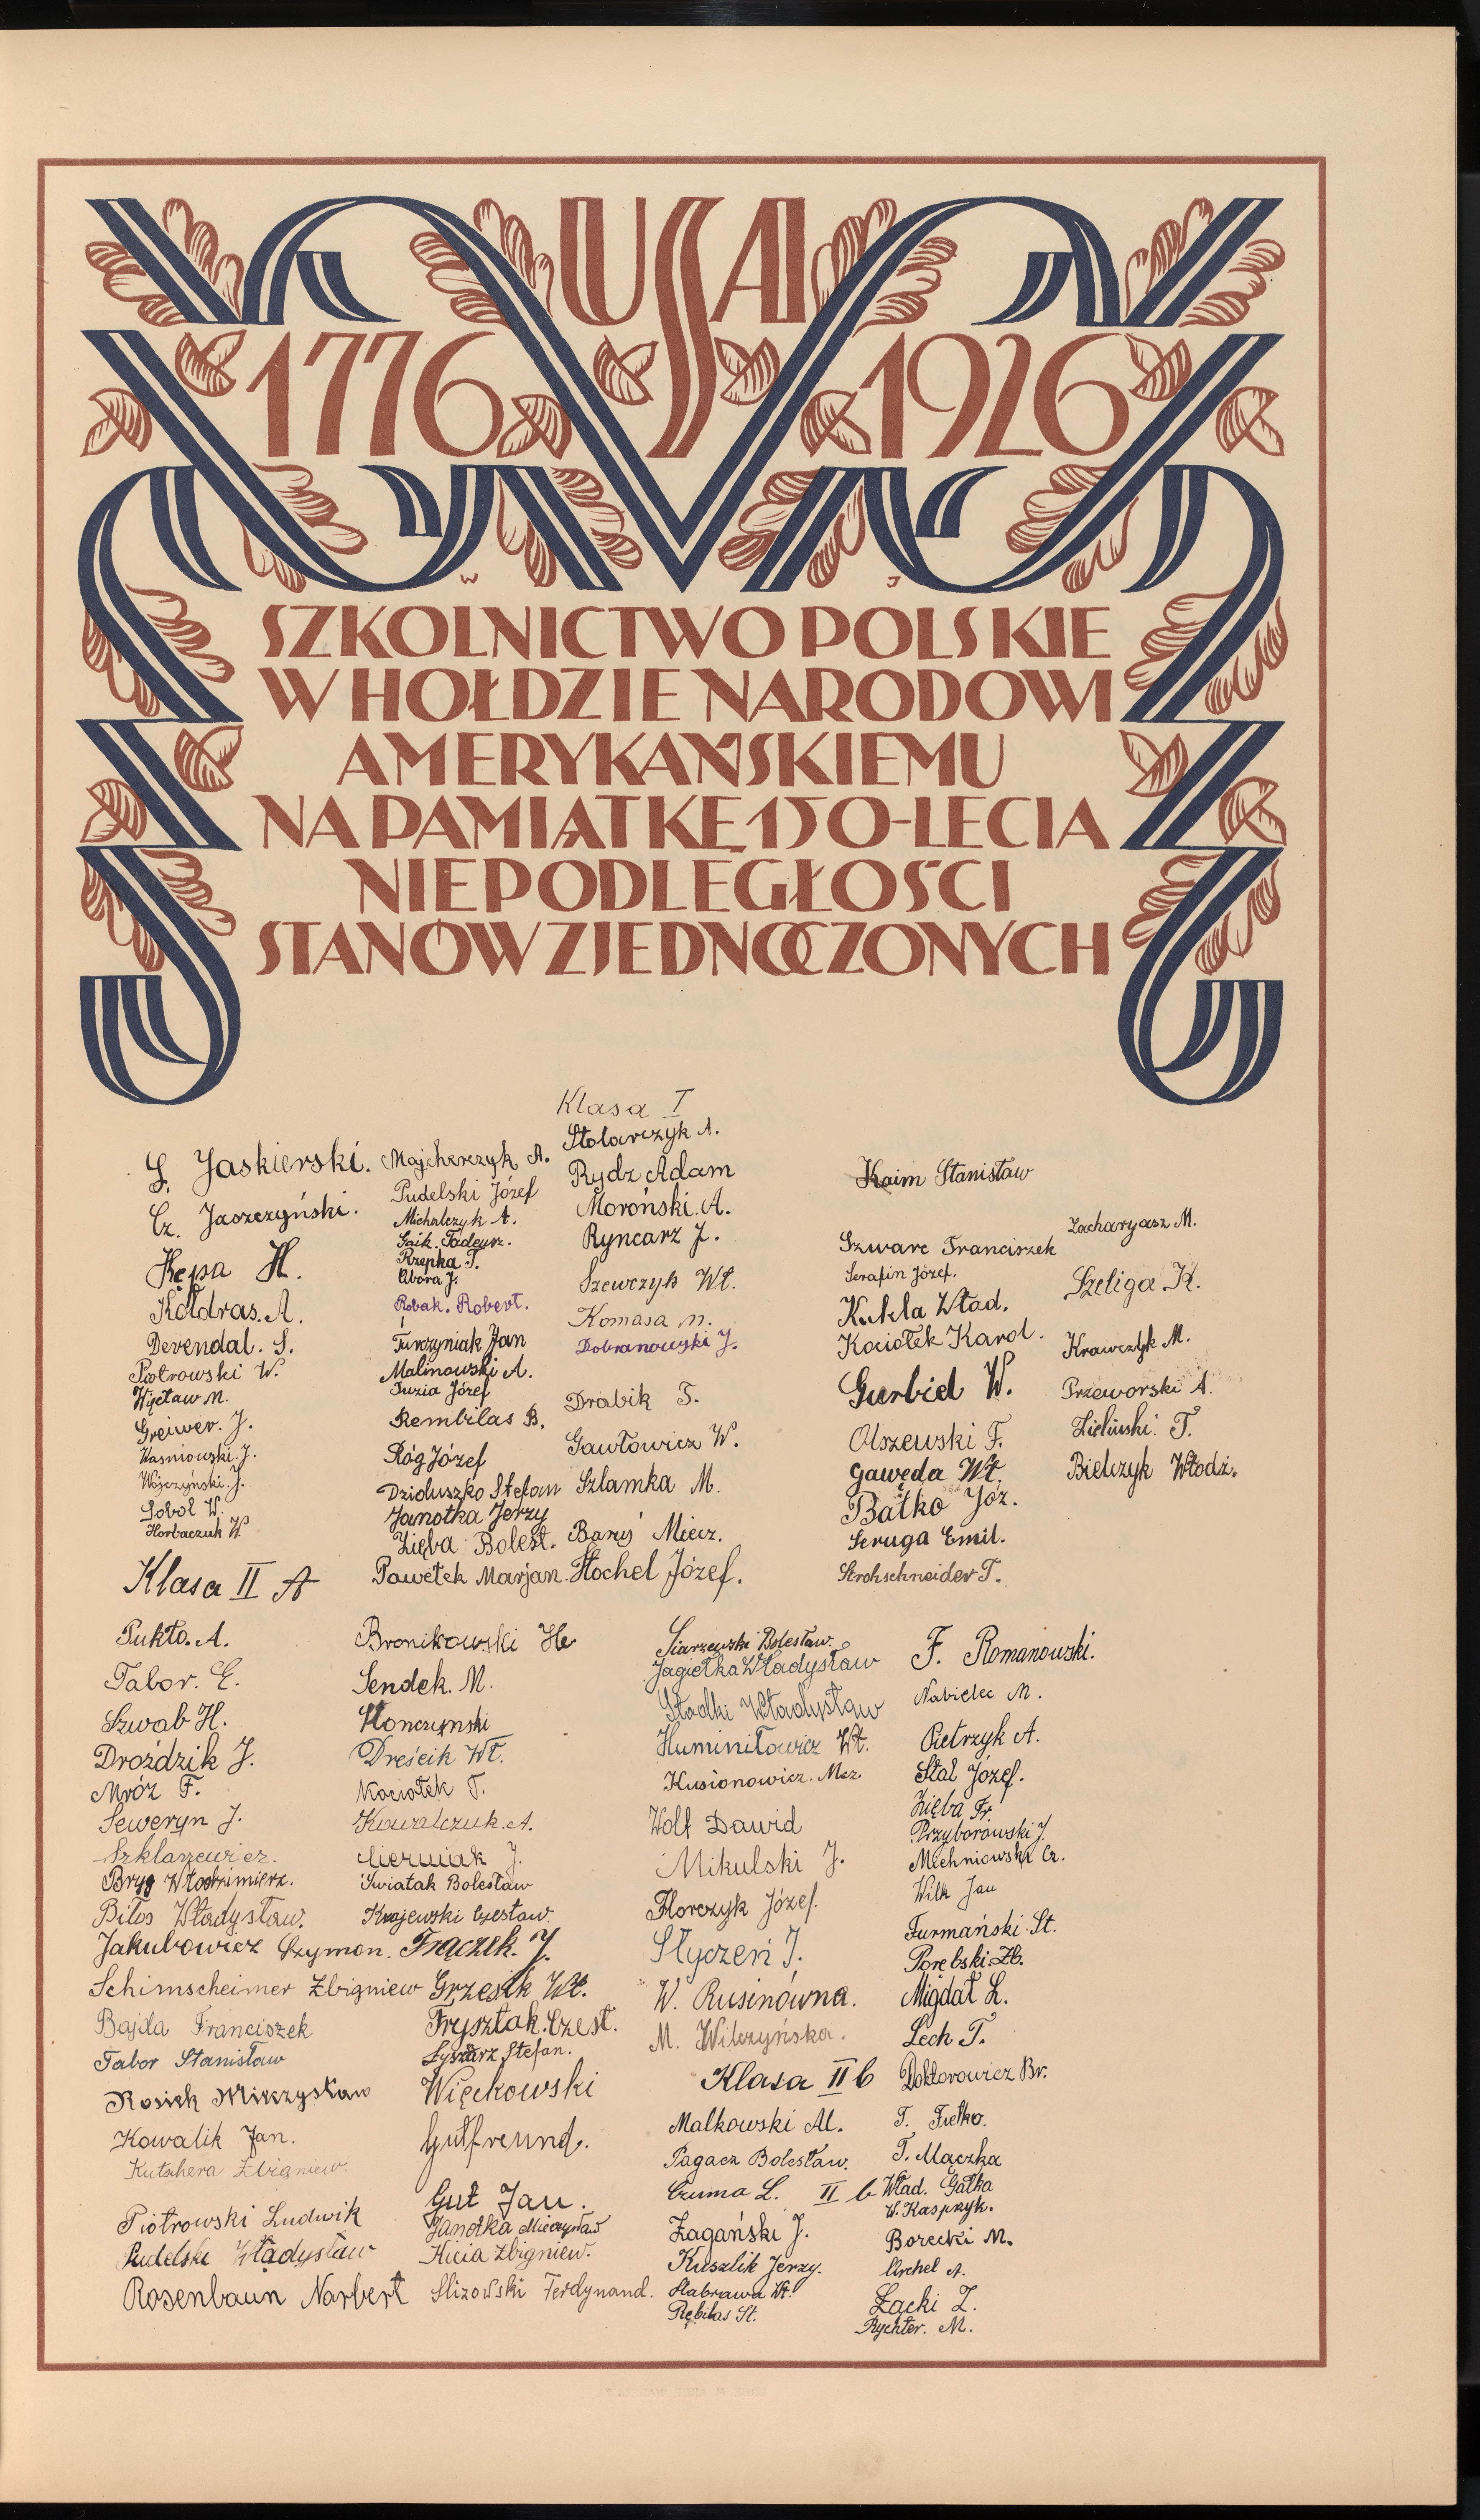 USA
1776 1926
W J
SZKOLNICTWO POLSKIE
W HOŁDZIE NARODOWI
AMERYKAŃSKIEMU
NA PAMIĄTKĘ 150-LECIA
NIEPODLEGŁOŚCI
STANÓW ZJEDNOCZONYCH
Klasa I
S. Jaskierski.
Cz. Jaszczyński.
Kępa H.
Kołdras. A.
Devendal. S.
Piotrowski W.
Więcław M.
Greiwer. J.
Waśniowski. J.
Wójczyński. J.
Soból W.
Horbaczuk W.
Majcherczyk A.
Pudelski Józef
Michalczyk A.
Gaik. Tadeusz.
Rzepka T.
Obora J.
Robak. Robert.
Turczyniak Jan
Malinowski A.
Tuzia Józef
Rembilas B.
Róg Józef
Dzioluszko Stefan
Janotka Jerzy
Zięba Bolest.
Pawełek Marjan.
Stolarczyk A.
Rydz Adam
Moroński. A.
Ryncarz J.
Szewczyk Wł.
Komasa M.
Dobranowski J.
Drabik F.
Gawłowicz W.
Szlamka M.
Baruś Miecz.
Stochel Józef.
Kaim Stanisław
Szwarc Franciszek
Serafin Józef.
Kukla Wład.
Kociołek Karol.
Gurbiel W.
Olszewski F.
Gawęda Wł.
Batko Józ.
Seruga Emil.
Strohschneider T.
Zacharyasz M.
Szeliga K.
Krawczyk M.
Przeworski A.
Zieliński. T.
Bielczyk Włodz.
Klasa II A
Pukło. A.
Tabor. E.
Szwab H.
Droździk J.
Mróz F.
Seweryn J.
Szklarzewicz.
Bryg Włodzimierz.
Bilos Władysław.
Jakubowicz Szymon.
Schimscheimer Zbigniew
Bajda Franciszek
Tabor Stanisław
Rosiek Mieczysław
Kowalik Jan.
Kutschera Zbigniew.
Piotrowski Ludwik
Pudelski Władysław
Rosenbaun Narbert
Bronikowski He
Sendek. M.
Słonczynski
Dreścik Wł.
Kociołek T.
Kowalczuk. A.
Cierniak J.
Światak Bolesław
Krajewski Czesław.
Frączek. J.
Grzesik Wł.
Frysztak. Czest.
Łyszarz Stefan.
Więckowski
Gutfreund.
Gut Jan.
Janotka Mieczysław
Kicia Zbigniew.
Slizowski Ferdynand.
Siarzewski Bolesław.
Jagiełka Władysław
Słodki Władysław
Huminiłowicz Wł.
Kusionowicz. Mcz.
Wolf Dawid
Mikulski J.
Florczyk Józef.
Styczeń J.
W. Rusinówna.
M. Wilczyńska.
Klasa II b
Malkowski Al.
Pagacz Bolesław.
Czuma L. II b
Żagański J.
Kuszlik Jerzy.
Stabrawa Wł.
Rębilas St.
F. Romanowski.
Nabielec M.
Pietrzyk A.
Stal Józef.
Zięba Fr.
Przyborowski J.
Michniowski Cz.
Wilk Jan
Furmański St.
Porębski Zb.
Migdał L.
Lech T.
Doktorowicz Br.
T. Fiełko.
T. Mączka
Wład. Gałka
W. Kasprzyk.
Borecki M.
Urchel A.
Łącki Z.
Rychter. M.